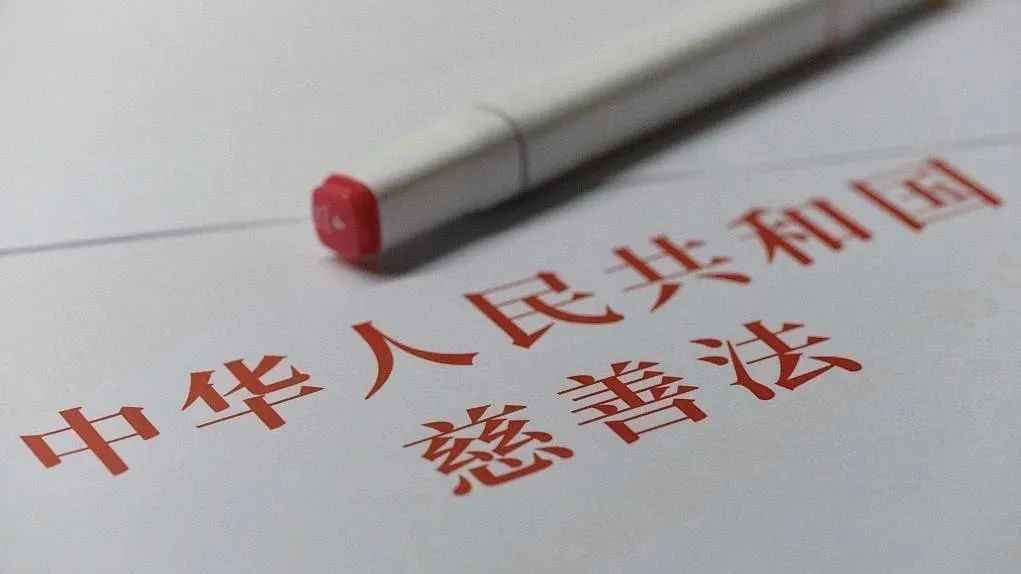 中华人民共和国
慈善法